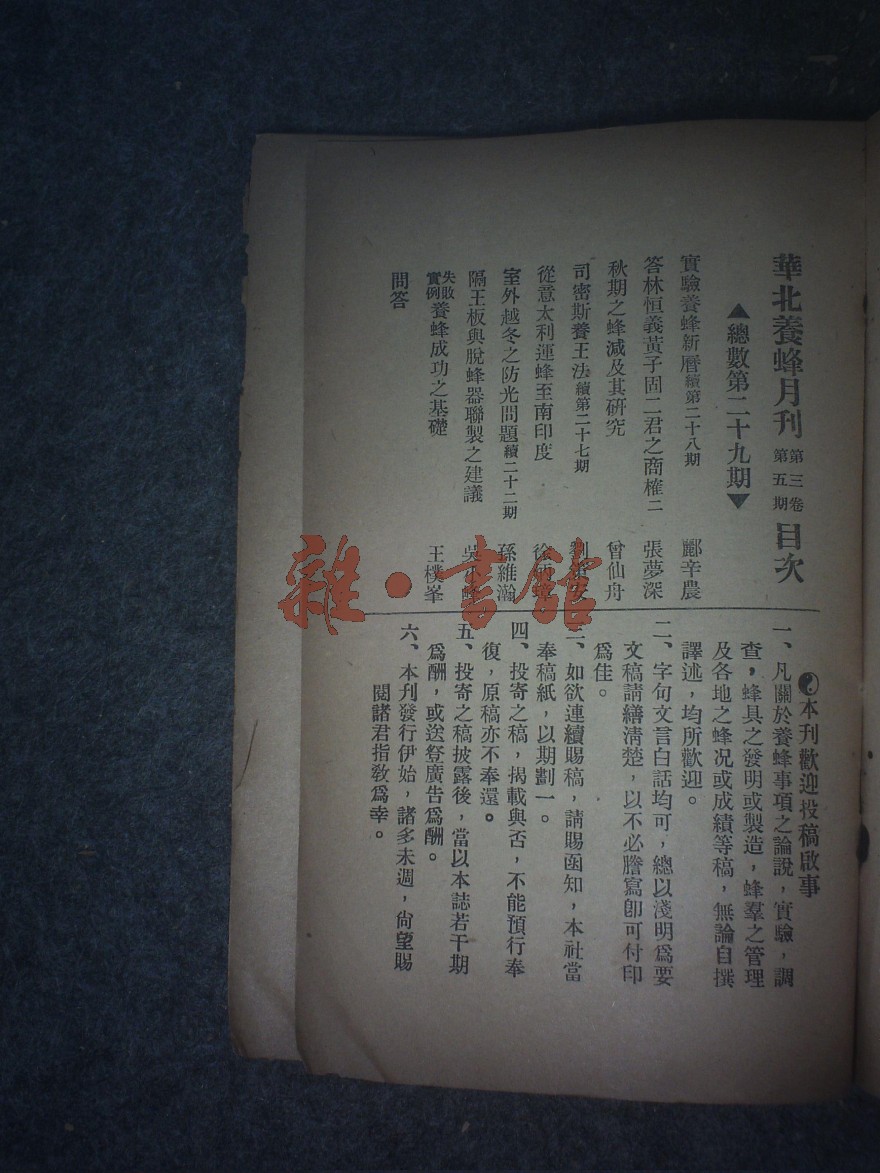 華北養蜂月刊 第三卷第五期 目次
▲總數第二十九期▼
實驗養蜂新曆 續第二十八期 酈辛農
答林恒義黃子固二君之商榷二 張夢深
秋期之蜂減及其研究 曾仙舟
司密斯養王法 續第二十七期
從意太利運蜂至南印度
室外越冬之防光問題 續二十二期 孫維瀚
隔王板與脫蜂器聯製之建議
失敗實例養蜂成功之基礎 王樸峯
問答
本刊歡迎投稿啟事
一、凡關於養蜂事項之論說，實驗，調
查，蜂具之發明或製造，蜂羣之管理
及各地之蜂況或成績等稿，無論自撰
譯述，均所歡迎。
二、字句文言白話均可，總以淺明為要
文稿請繕清楚，以不必謄寫卽可付印
為佳。
三、如欲連續賜稿，請賜函知，本社當
奉稿紙，以期劃一。
四、投寄之稿，揭載與否，不能預行奉
復，原稿亦不奉還。
五、投寄之稿披露後，當以本誌若干期
為酬，或送登廣告為酬。
六、本刊發行伊始，諸多未週，尙望賜
閱諸君指敎為幸。
雜·書館